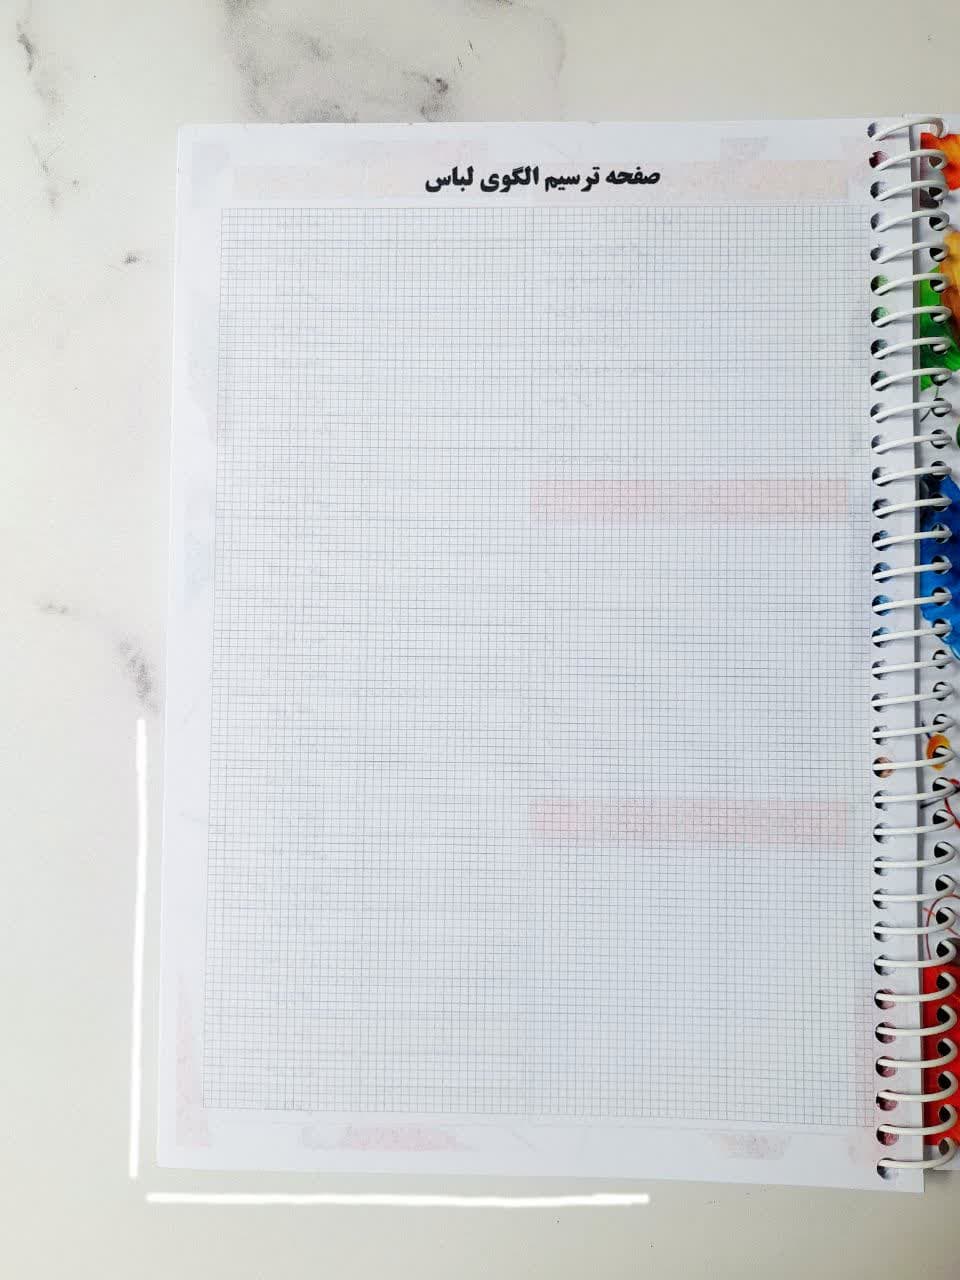 صفحه ترسیم الگوی لباس